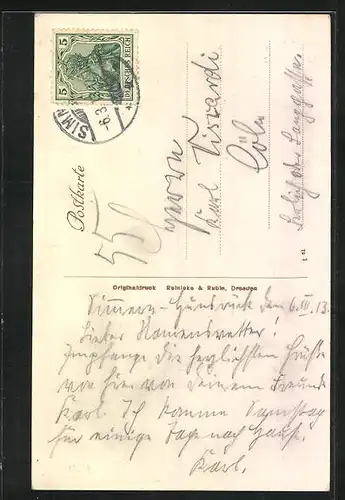 5
DEUTSCHES REICH
SIMM
-6.3
Postkarte
55
Herrn
Karl Viscardi
Cöln
Originaldruck Reinicke & Rubin, Dresden
Simmern-Hunsrück den 6.III.13.
Lieber Namensvetter!
Empfange die herzlichsten Grüße
von hier von Deinem Freunde
Karl. Ich komme Samstag
für einige Tage nach Hause.
Karl.